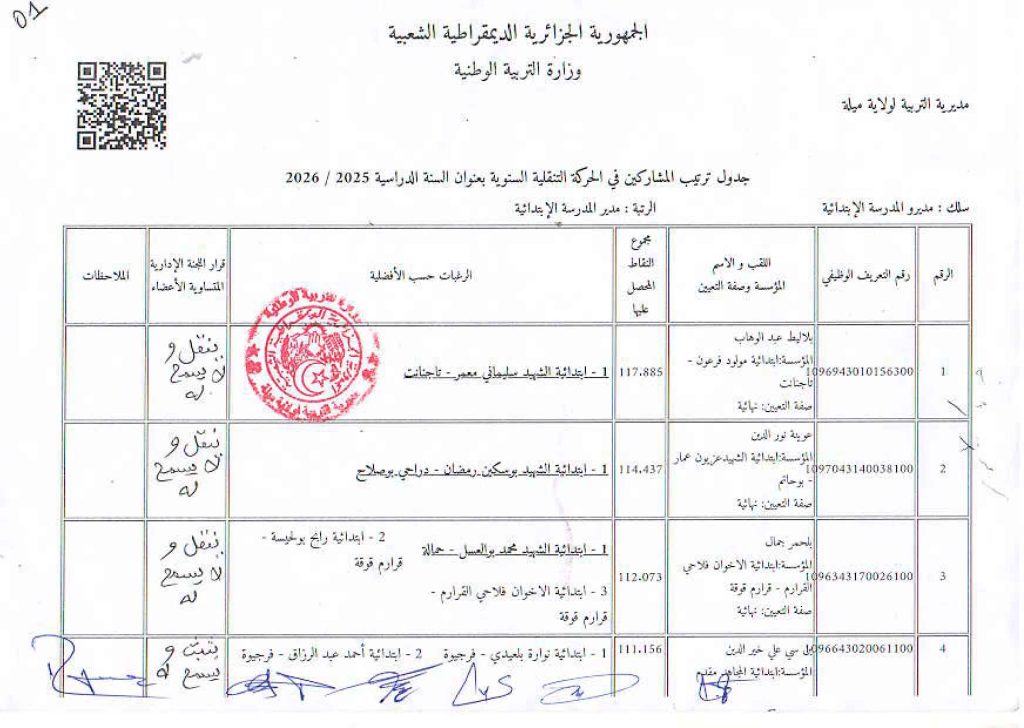 01
الجمهورية الجزائرية الديمقراطية الشعبية
وزارة التربية الوطنية
مديرية التربية لولاية ميلة
جدول ترتيب المشاركين في الحركة التنقلية السنوية بعنوان السنة الدراسية 2025 / 2026
سلك : مديرو المدرسة الإبتدائية الرتبة : مدير المدرسة الإبتدائية
الرقم
رقم التعريف الوظيفي
اللقب و الاسم
المؤسسة وصفة التعيين
مجموع
النقاط
المحصل
عليها
الرغبات حسب الأفضلية
قرار اللجنة الإدارية
المتساوية الأعضاء
الملاحظات
1
1096943010156300
بلاليط عبد الوهاب
المؤسسة:ابتدائية مولود فرعون -
تاجنانت
صفة التعيين: نهائية
117.885
1 - ابتدائية الشهيد سليماني معمر - تاجنانت
ينقل و
لا يسمح
له
2
1097043140038100
عوينة نور الدين
المؤسسة:ابتدائية الشهيدعزيون عمار
- بوحاتم
صفة التعيين: نهائية
114.437
1 - ابتدائية الشهيد بوسكين رمضان - دراحي بوصلاح
ينقل و
لا يسمح
له
3
1096343170026100
بلحمر جمال
المؤسسة:ابتدائية الاخوان فلاحي
القرارم - قرارم قوقة
صفة التعيين: نهائية
112.073
1 - ابتدائية الشهيد محمد بوالعسل - حمالة
2 - ابتدائية رابح بولحيسة -
قرارم قوقة
3 - ابتدائية الاخوان فلاحي القرارم -
قرارم قوقة
ينقل و
لا يسمح
له
4
1096643020061100
بل سي علي خير الدين
المؤسسة:ابتدائية المجاهد مقدم
111.156
1 - ابتدائية نوارة بلعيدي - فرجيوة 2 - ابتدائية أحمد عبد الرزاق - فرجيوة
يثبت و
يسمح له